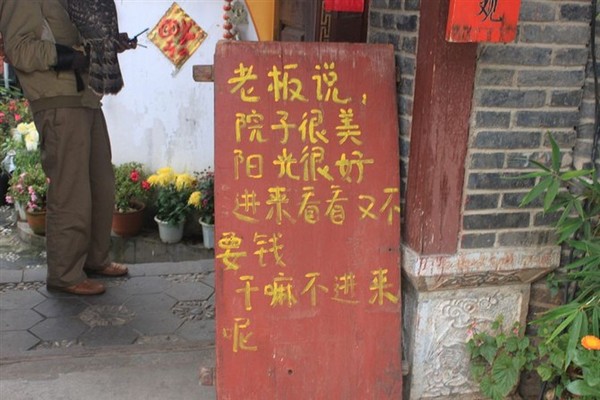 老板说，
院子很美
阳光很好
进来看看又不
要钱
干嘛不进来
呢
观